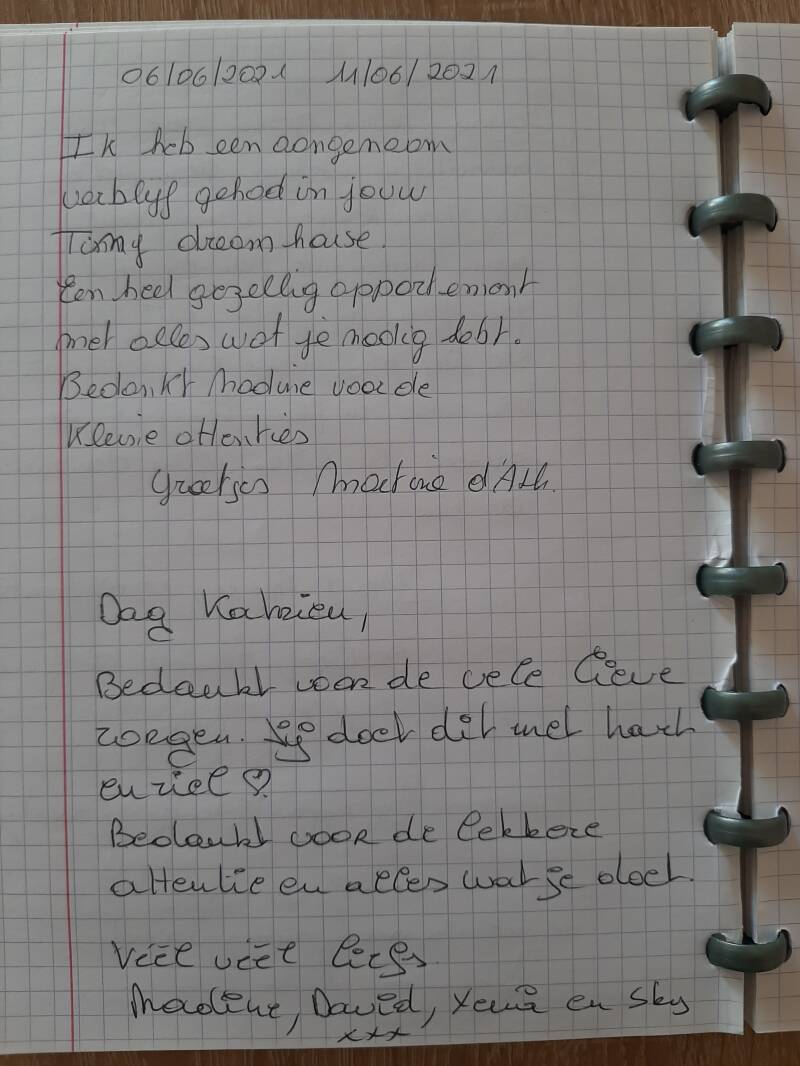 06/06/2021 11/06/2021
Ik heb een aangenaam
verblijf gehad in jouw
Tinny dreamhouse.
Een heel gezellig appartement
met alles wat je nodig hebt.
Bedankt Nadine voor de
Kleine attenties
Groetjes Martine d'Ath.
Dag Katrien,
Bedankt voor de vele lieve
zorgen. Jij doet dit met hart
en ziel ♡.
Bedankt voor de lekkere
attentie en alles wat je doet.
Veel veel liefs
Nadine, David, Xenia en Sky
xxx